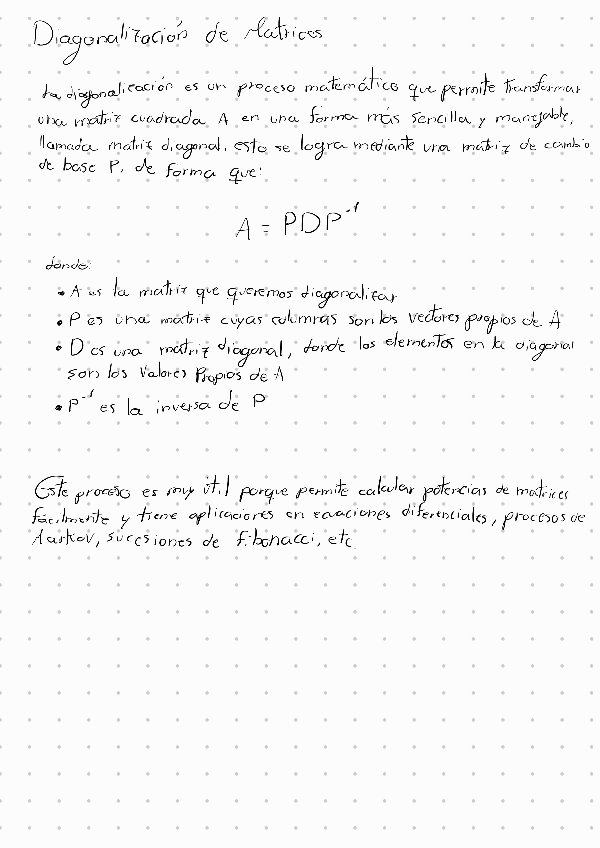 Diagonalización de Matrices
La diagonalización es un proceso matemático que permite transformar
una matriz cuadrada A en una forma más sencilla y manejable,
llamada matriz diagonal, esto se logra mediante una matriz de cambio
de base P, de forma que:
A = PDP⁻¹
donde:
• A es la matriz que queremos diagonalizar
• P es una matriz cuyas columnas son los vectores propios de A
• D es una matriz diagonal, donde los elementos en la diagonal
son los valores Propios de A
• P⁻¹ es la inversa de P
Este proceso es muy útil porque permite calcular potencias de matrices
fácilmente y tiene aplicaciones en ecuaciones diferenciales, procesos de
Markov, sucesiones de Fibonacci, etc.